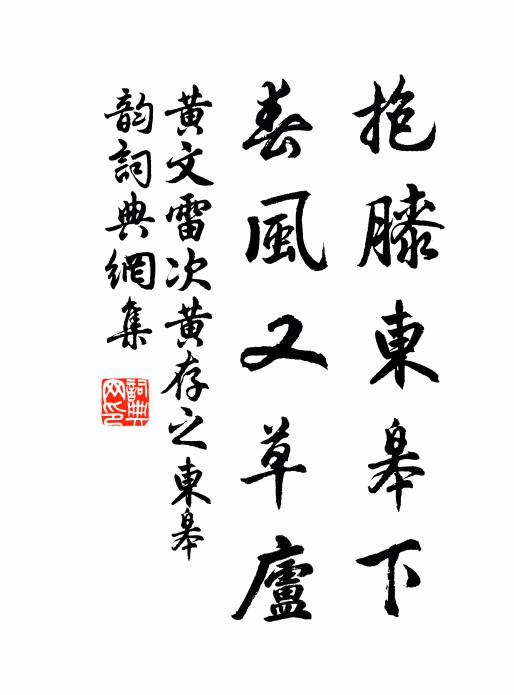 抱膝東皋下
春風又草廬
黄文雷次黄存之東皋
韵詞典網集
詞典网印